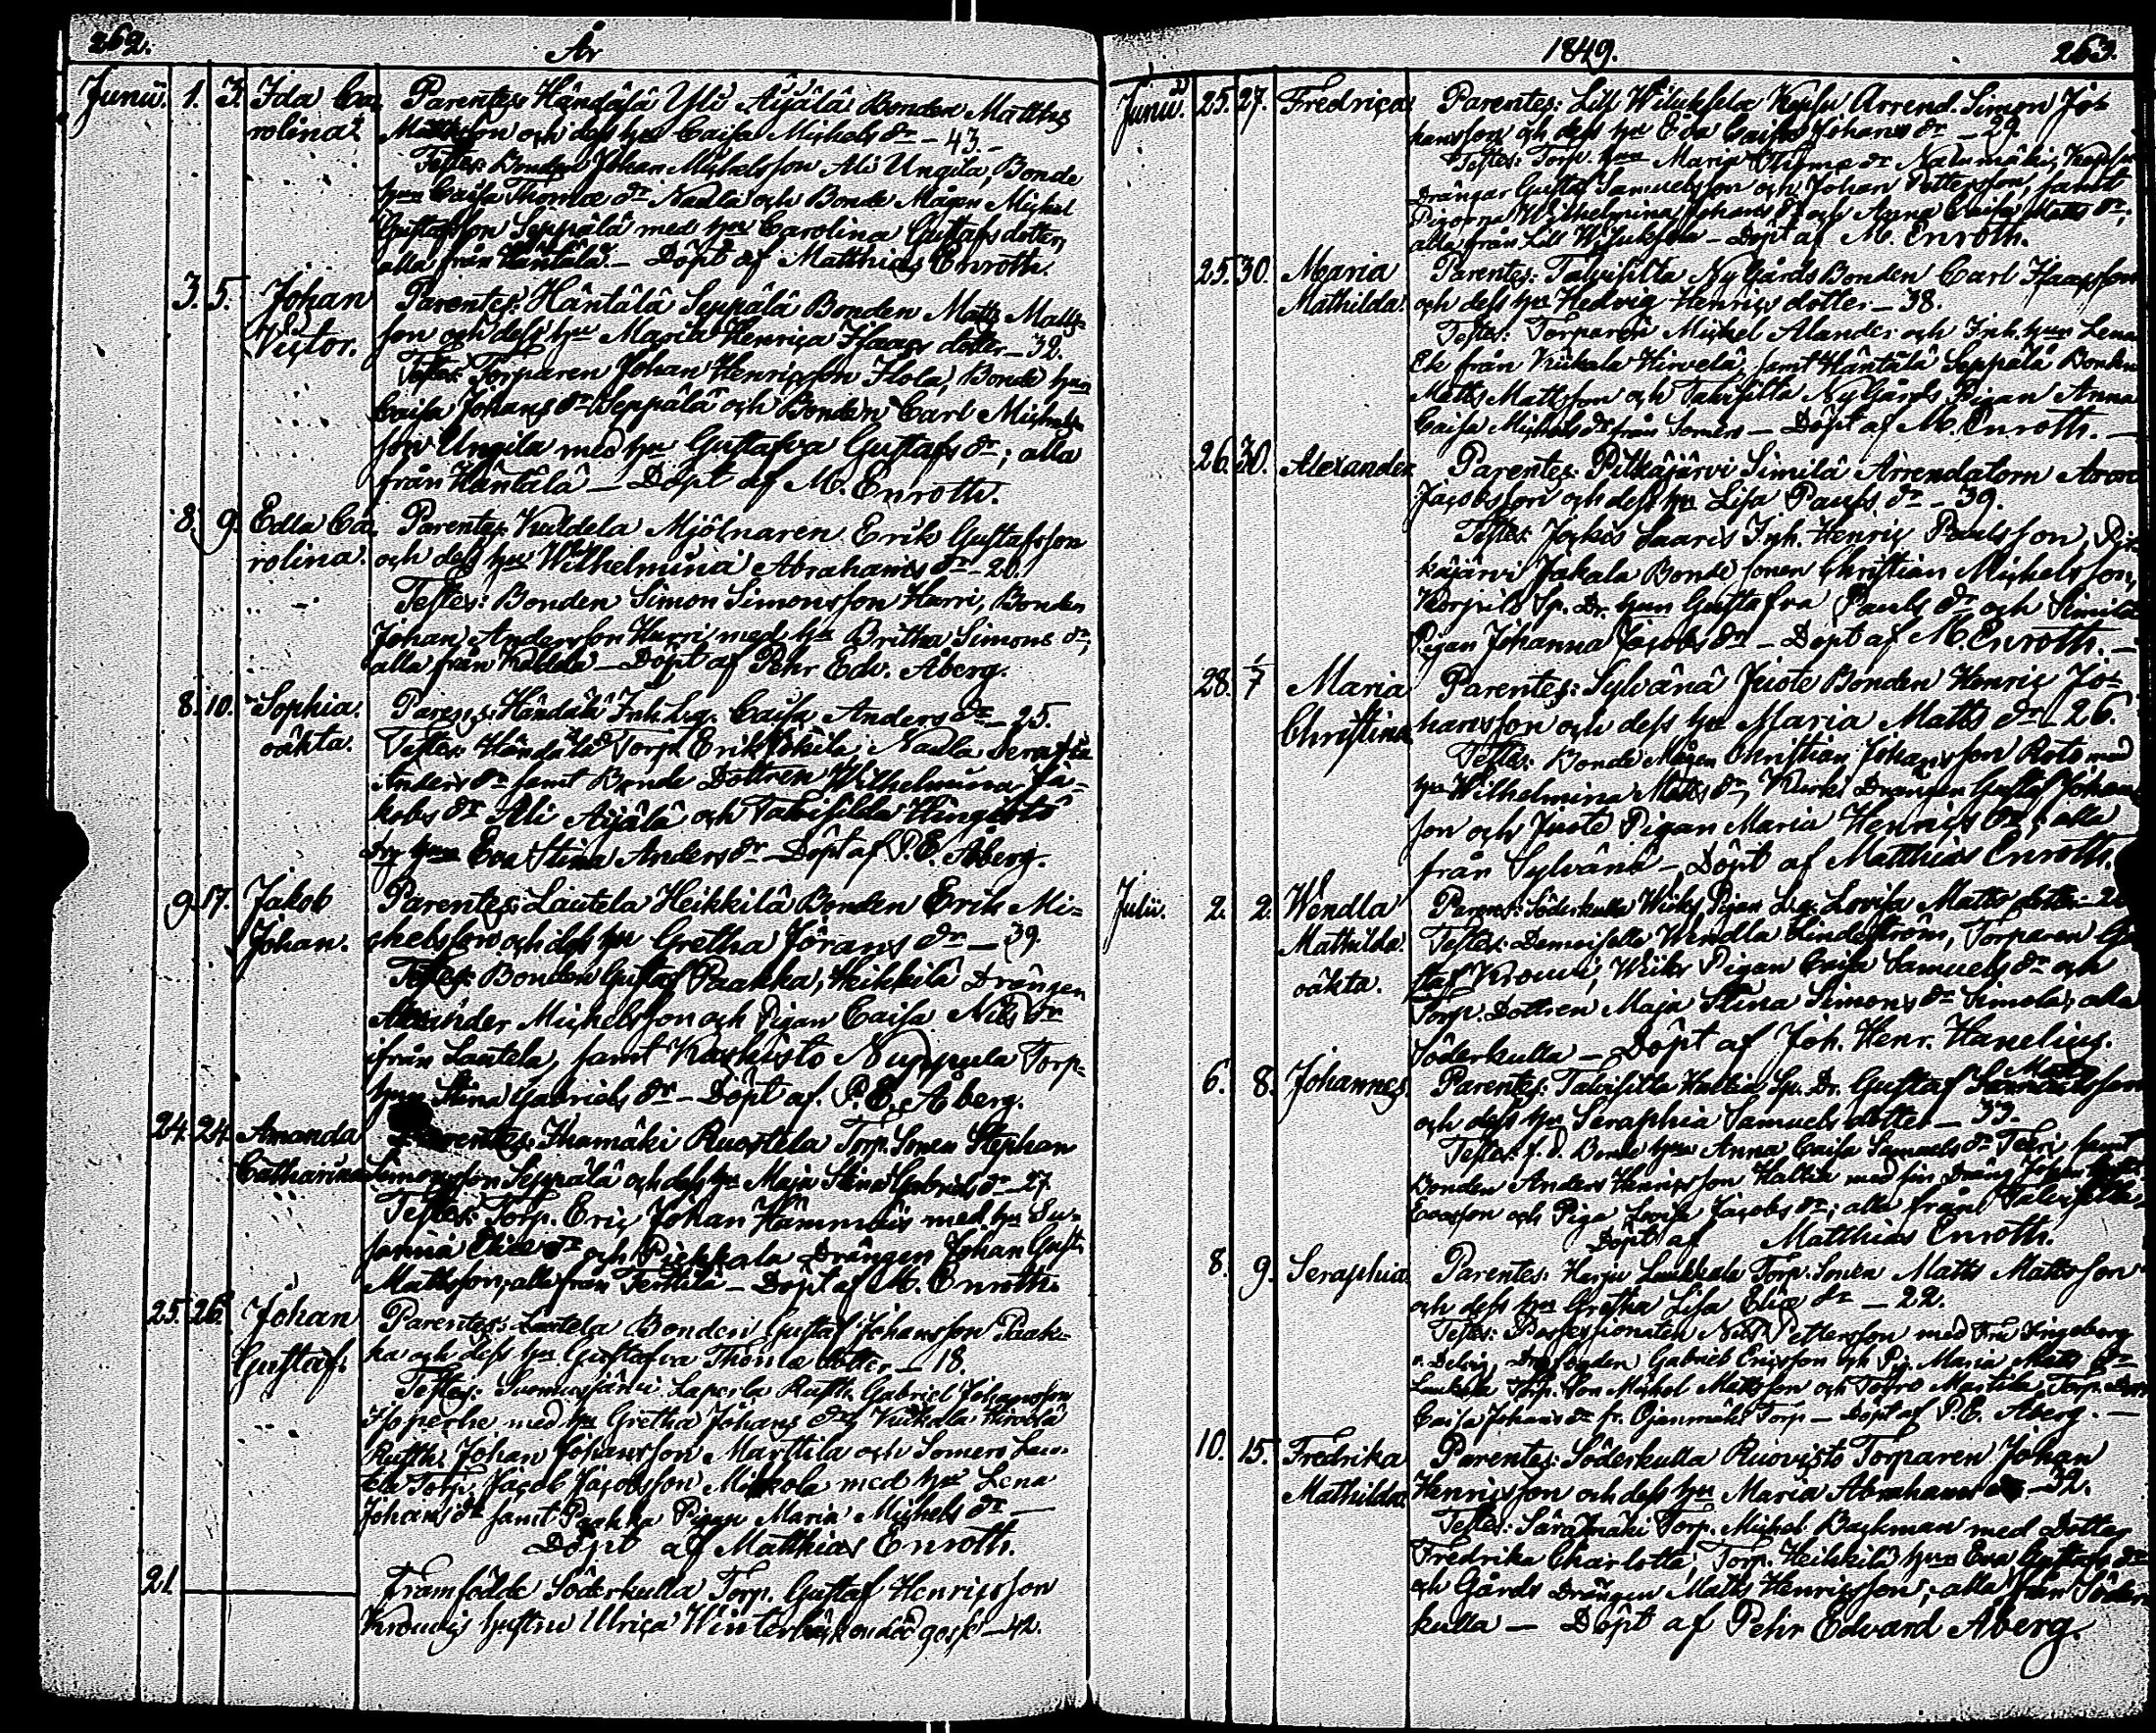 262. År
Junii. 1. 3. Ida Ca- Parentes: Händälä Yli Äijälä Bonden Matths
rolina. Mattsson och dess hu Caisa Michels dr - 43. -
Testes: Bonden Johan Michelsson Ali Ungila, Bonde
hun Caisa Thomæ dr Naula och Bonde Mågen Michel
Gustafsson Seppälä med hu Carolina Gustafs dotter,
alla från Häntälä. - Döpt af Matthias Enroth.
3. 5. Johan Parentes: Häntälä Seppälä Bonden Matts Matts-
Victor. son och dess hu Maria Henrica Isaacs dotter - 32.
Testes: Torparen Johan Henricsson Hola, Bonde hun
Caisa Johans dr Seppälä och Bonden Carl Michels-
son Ungila med hu Gustafva Gustafs dr; alla
från Häntälä - Döpt af M. Enroth.
8. 9. Edla Ca- Parentes: Kuldela Mjölnaren Erik Gustafsson
rolina. och dess hu Wilhelmina Abrahams dr - 20.
Testes: Bonden Simon Simonsson Harri, Bonden
Johan Andersson Hurri med hu Britha Simons dr,
alla från - Döpt af Pehr Edv. Åberg.
8. 10. Sophia. Parens: Händälä Inh. L.q. Caisa Anders dr - 25.
oäkta. Testes: Händälä Torp. Erik Naula Serafia
Anders dr samt Bonde Dottren Wilhelmina Ja-
kobs dr Ali Äijälä och Talvisilda Hingisto
hun Eva Stina Anders dr - Döpt af P. E. Åberg.
9. 17. Jakob Parentes: Lautela Heikkilä Bonden Erik Mi-
Johan. chelsson och dess hu Gretha Jörans dr - 39.
Testes: Bonden Gustaf Paakka, Heikkilä Drängen
Alexander Michelsson och Pigan Caisa Nils dr
ifrån Lautela, samt Kaskisto Nuppula Torp-
hun Stina Gabriels dr - Döpt af. P. E. Åberg.
24. 24. Amanda Parentes: Ihamäki Ruostela Torp. Sonen Stephan
Catharina Simonsson Seppälä och dess hu Maja Stina Gabriels dr - 27
Testes: Torp. Eric Johan med hu Su-
sanna dr och Piekkala Drängen Johan Gust.
Mattsson, alla från Terttilä - Döpt af M. Enroth.
25. 26. Johan Parentes: Lautela Bonden Gustaf Johansson Paak-
Gustaf. ka och dess hu Gustafva Thomæ dotter - 18.
Testes: Suomusjärvi Laperla Rusth. Gabriel Johansson
med hu Gretha Johans dr, Kiikala Hirvelä
Rusth. Johan Johansson Marttila och Somero Lau-
tela Torp. Jacob Jacobsson Mikkola med hu Lena
Johans dr samt Paakka Pigan Maria Michels dr -
Döpt af Matthias Enroth.
21 Framfödde Söderkulla Torp. Gustaf Henricsson
Krouvis hustru Ulrica Winter gosse - 42.
1849. 263.
Junii. 25. 27. Fredrica. Parentes: Lill Wiluksela Arrend. Simon Jo-
hansson och dess hu Eva Caisa Johans dr - 29.
Testes: Torp. hun Maria dr Nalumäki,
Drängar Gustaf Samuelsson och Johan Pettersson, samt
Pigorna Wilhelmina Johans dr och Anna Caisa Matts dr,
alla från Lill Wiluksela - Döpt af M. Enroth.
25. 30. Maria Parentes: Talvisilta Nygårds Bonden Carl Isaacsson
Mathilda. och dess hu Hedvig Henrics dotter - 38.
Testes: Torparen Michel Alander och Inh. hun Lena
Ek från Kiikala Hirvelä, samt Häntälä Seppälä Bonden
Matts Mattsson och Talvisilta Nygårds Pigan Anna
Caisa Michels dr från Somero - Döpt af M. Enroth. -
26. 30. Alexander Parentes: Pitkäjärvi Similä Arrendatorn Aron
Jacobsson och dess hu Lisa Pauls dr - 39.
Testes: Jockis Saaris Inh. Henric Paulsson, Pit-
käjärvi Jakala Bonde sonen Christian Michelsson,
Korpilo Sp. Dr. hun Gustafva Pauls dr och Similä
Pigan Johanna Jacobs dr - Döpt af M. Enroth. -
28. 1/7 Maria Parentes: Sylvänä Juote Bonden Henric Jo-
Christina. hansson och dess hu Maria Matts dr - 26.
Testes: Bonde Mågen Christian Johansson Roto med
hu Wilhelmina Matts dr, Drängen Gustaf Johans-
son och Juote Pigan Maria Henrics dr; alla
från Sylvänä - Döpt af Matthias Enroth.
Julii. 2. 2. Wendla Parens: Söderkulla Wiiks Pigan L.q. Lovisa Matts dotter - 2
Mathilda. Testes: Demoiselle Wendla Lindeström, Torparen Gu-
oäkta. staf Krouvi, Wiiks Pigan Caisa Samuels dr och
Torp. Dottren Maja Stina Simons dr Simola, alla
Söderkulla - Döpt af Joh. Henr. Hanelius.
6. 8. Johannes. Parentes: Talvisilta Haltia Sp. Dr. Gustaf Matsson
och dess hu Seraphia Samuels dotter - 33.
Testes: f. d. Bonde hun Anna Caisa Samuels dr Teeri samt
Bonden Anders Henricsson Haltia med sin Dräng Johan
Ericsson och Piga Lovisa Jacobs dr; alla från Talvisilta
Döpt af Matthias Enroth.
8. 9. Seraphia Parentes: Harju Laukkala Torp. Sonen Matts Mattsson
och dess hu Gretha Lisa Eliæ dr - 22.
Testes: Possessionaten Nils Pettersson med Fru Ingeborg
Gabriel Ericsson och Pig. Maria Matts dr
Laukkala Torp. Son Michel Mattsson och Marttila Torp.
Caisa Johans dr fr. Ojanmäki Torp - Döpt af P. E. Åberg. -
10. 15. Fredrika Parentes: Söderkulla Ruovisto Torparen Johan
Mathilda. Henricsson och dess hu Maria Abrahams dr - 32.
Testes: Torp. Michel Backman med Dotter
Fredrika Charlotta, Torp. Heikkilä hun Eva Gustafs dr
och Gårds Drängen Matts Henricsson; alla från Söder-
kulla - Döpt af Pehr Edvard Åberg.